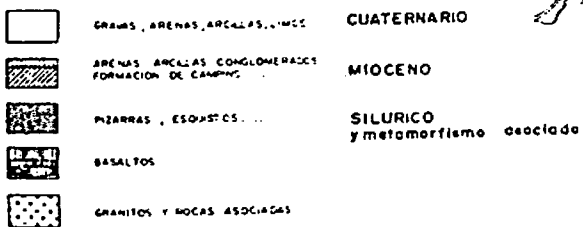 GRAVAS, ARENAS, ARCILLAS, LIMOS CUATERNARIO
ARENAS ARCILLAS CONGLOMERADOS
FORMACION DE MIOCENO
PIZARRAS, ESQUISTOS.... SILURICO
y metamorfismo asociado
BASALTOS
GRANITOS Y ROCAS ASOCIADAS